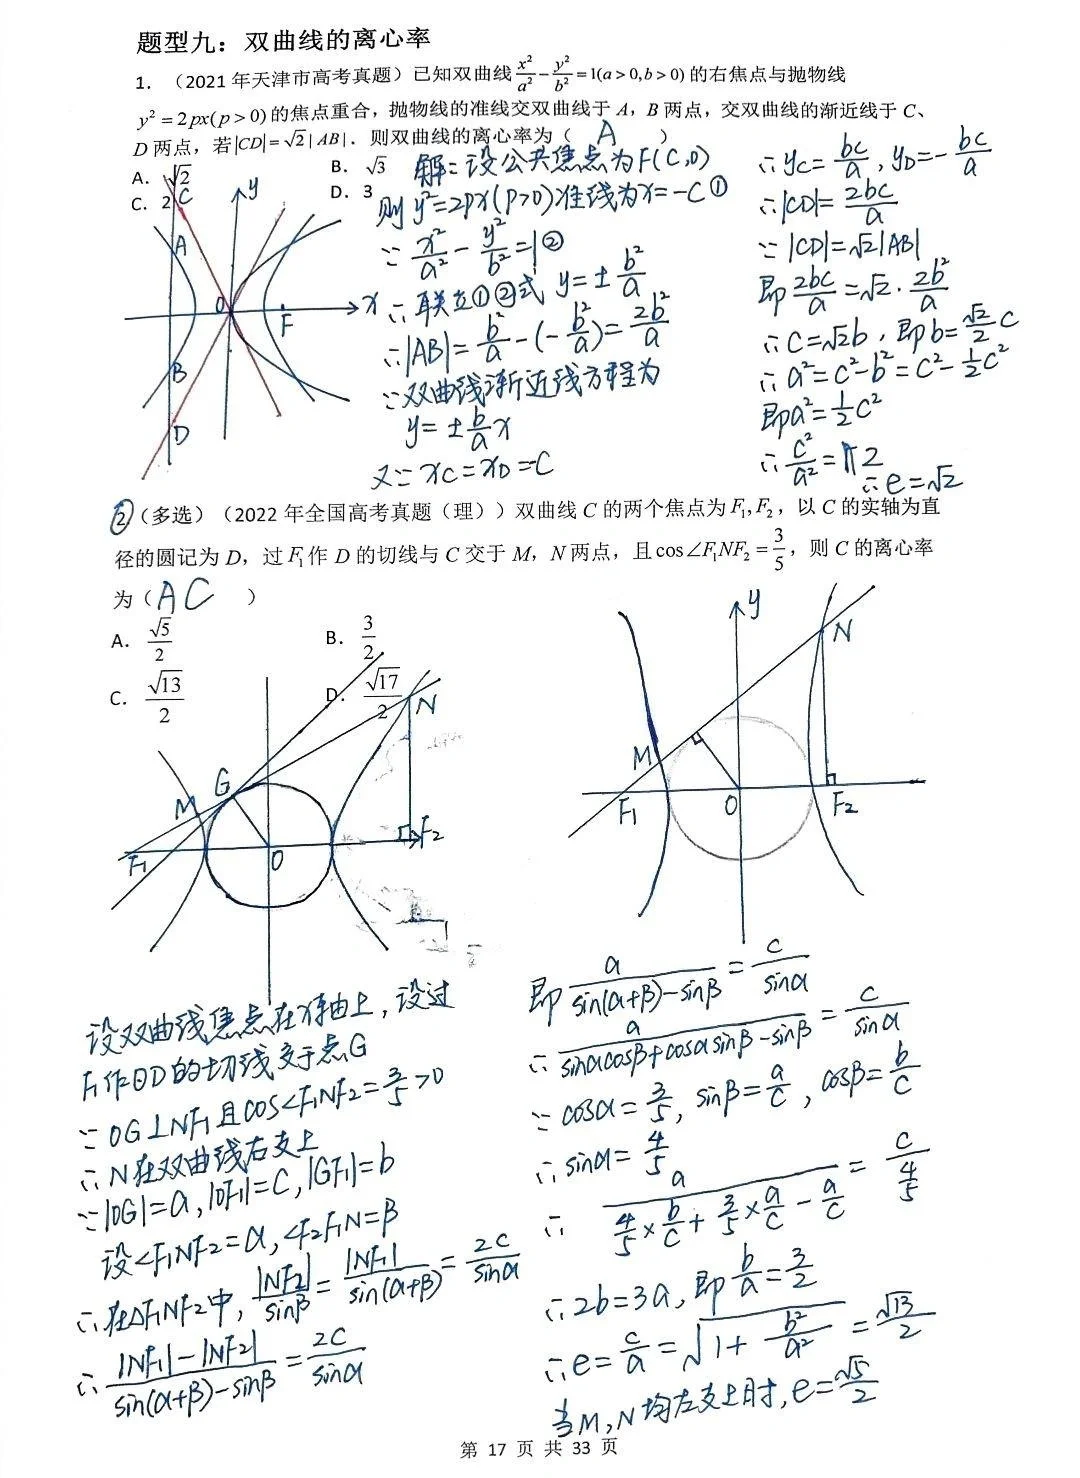 题型九：双曲线的离心率
1. （2021年天津市高考真题）已知双曲线 x²/a² - y²/b² = 1(a > 0, b > 0) 的右焦点与抛物线
y² = 2px(p > 0) 的焦点重合，抛物线的准线交双曲线于 A，B 两点，交双曲线的渐近线于 C、
D 两点，若|CD| = √2 | AB |. 则双曲线的离心率为（ A ）
A. √2
B. √3
C. 2
D. 3
C
y
A
O
F
x
B
D
解：设公共焦点为F(C,0)
则y²=2px(p>0)准线为x=-C①
∵ x²/a² - y²/b² =1②
∴联立①②式 y=±b²/a
∴|AB|=b²/a-(-b²/a)=2b²/a
∵双曲线渐近线方程为
y=±b/a x
又∵xC=xD=C
∴yC=bc/a, yD=-bc/a
∴|CD|=2bc/a
∵|CD|=√2|AB|
即2bc/a=√2·2b²/a
∴C=√2b，即b=√2/2 C
∴a²=C²-b²=C²-1/2C²
即a²=1/2C²
∴C²/a²=2
∴e=√2
②（多选）（2022年全国高考真题（理））双曲线 C 的两个焦点为 F₁, F₂，以 C 的实轴为直
径的圆记为 D，过 F₁ 作 D 的切线与 C 交于 M，N 两点，且 cos∠F₁NF₂ = 3/5，则 C 的离心率
为（ AC ）
A. √5/2
B. 3/2
C. √13/2
D. √17/2
N
G
M
F₁
O
F₂
y
N
M
F₁
O
F₂
设双曲线焦点在x轴上，设过
F₁作⊙D的切线交于点G
∵OG⊥NF₁且cos<F₁NF₂=3/5>0
∴N在双曲线右支上
∵|OG|=a,|OF₁|=C,|GF₁|=b
设<F₁NF₂=α,<F₂F₁N=β
∴在△F₁NF₂中, |NF₂|/sinβ=|NF₁|/sin(α+β)=2C/sinα
∴ (|NF₁|-|NF₂|)/(sin(α+β)-sinβ)=2C/sinα
即 a/(sin(α+β)-sinβ)=C/sinα
∴ a/(sinαcosβ+cosαsinβ-sinβ)=C/sinα
∵cosα=3/5, sinβ=a/C, cosβ=b/C
∴sinα=4/5
∴ a/(4/5×b/C+3/5×a/C-a/C)=C/(4/5)
∴2b=3a, 即b/a=3/2
∴e=C/a=√(1+b²/a²)=√13/2
当M,N均左支上时, e=√5/2
第 17 页 共 33 页